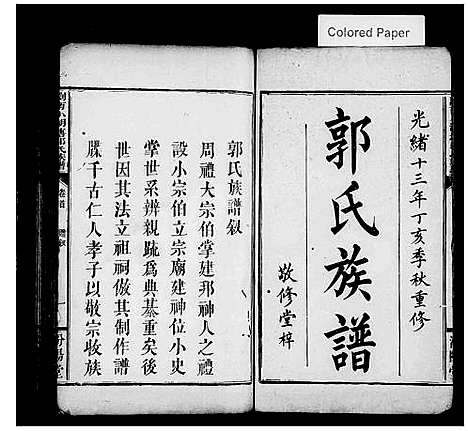 Colored Paper
光緒十三年丁亥季秋重修
郭氏族譜
敬修堂梓
郭氏族譜敘
周禮大宗伯掌建邦神人之禮
設小宗伯立宗廟建神位小史
掌世系辨親疏爲典綦重矣後
世因其法立祖祠倣其制作譜
牒千古仁人孝子以敬宗收族
卷首
譜敘
一
汾陽堂